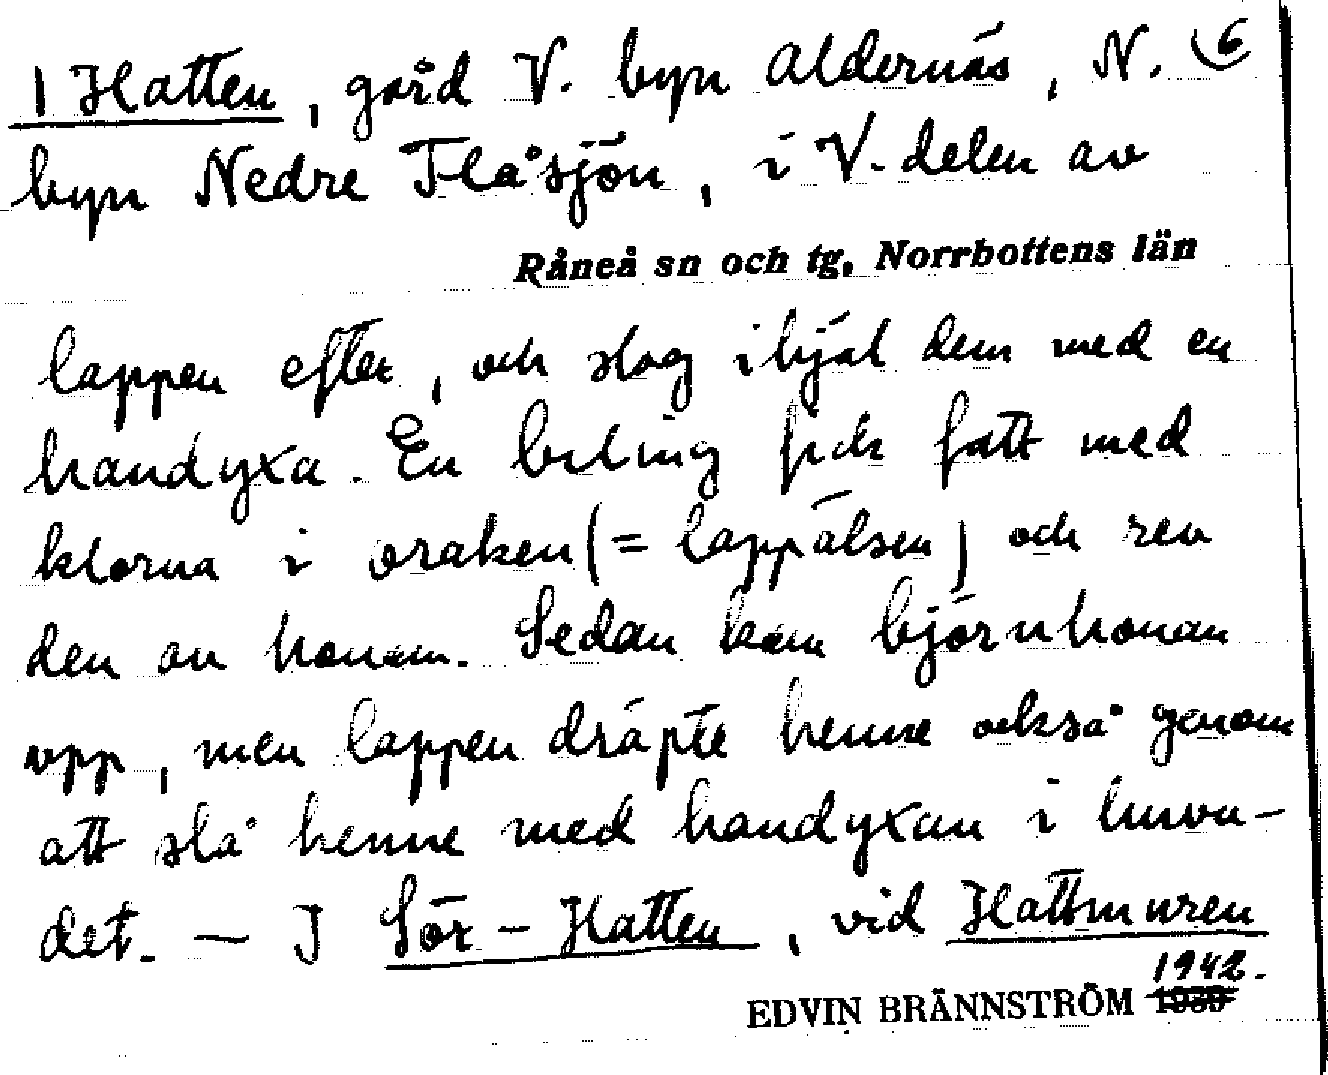 1 Hatten, gård V. byn Aldernäs, N. (6
byn Nedre Flåsjön, i V. delen av
Råneå sn och tg, Norrbottens län
lappen efter, och slog ihjäl dem med en
handyxa. En biling fick fatt med
klorna i oraken (= lappälsen) och rev
den av honom. Sedan kom björnhonan
upp, men lappen dräpte henne också genom
att slå henne med handyxan i huvu-
det. — I Sör-Hatten, vid Hattmuren
EDVIN BRÄNNSTRÖM 1942.